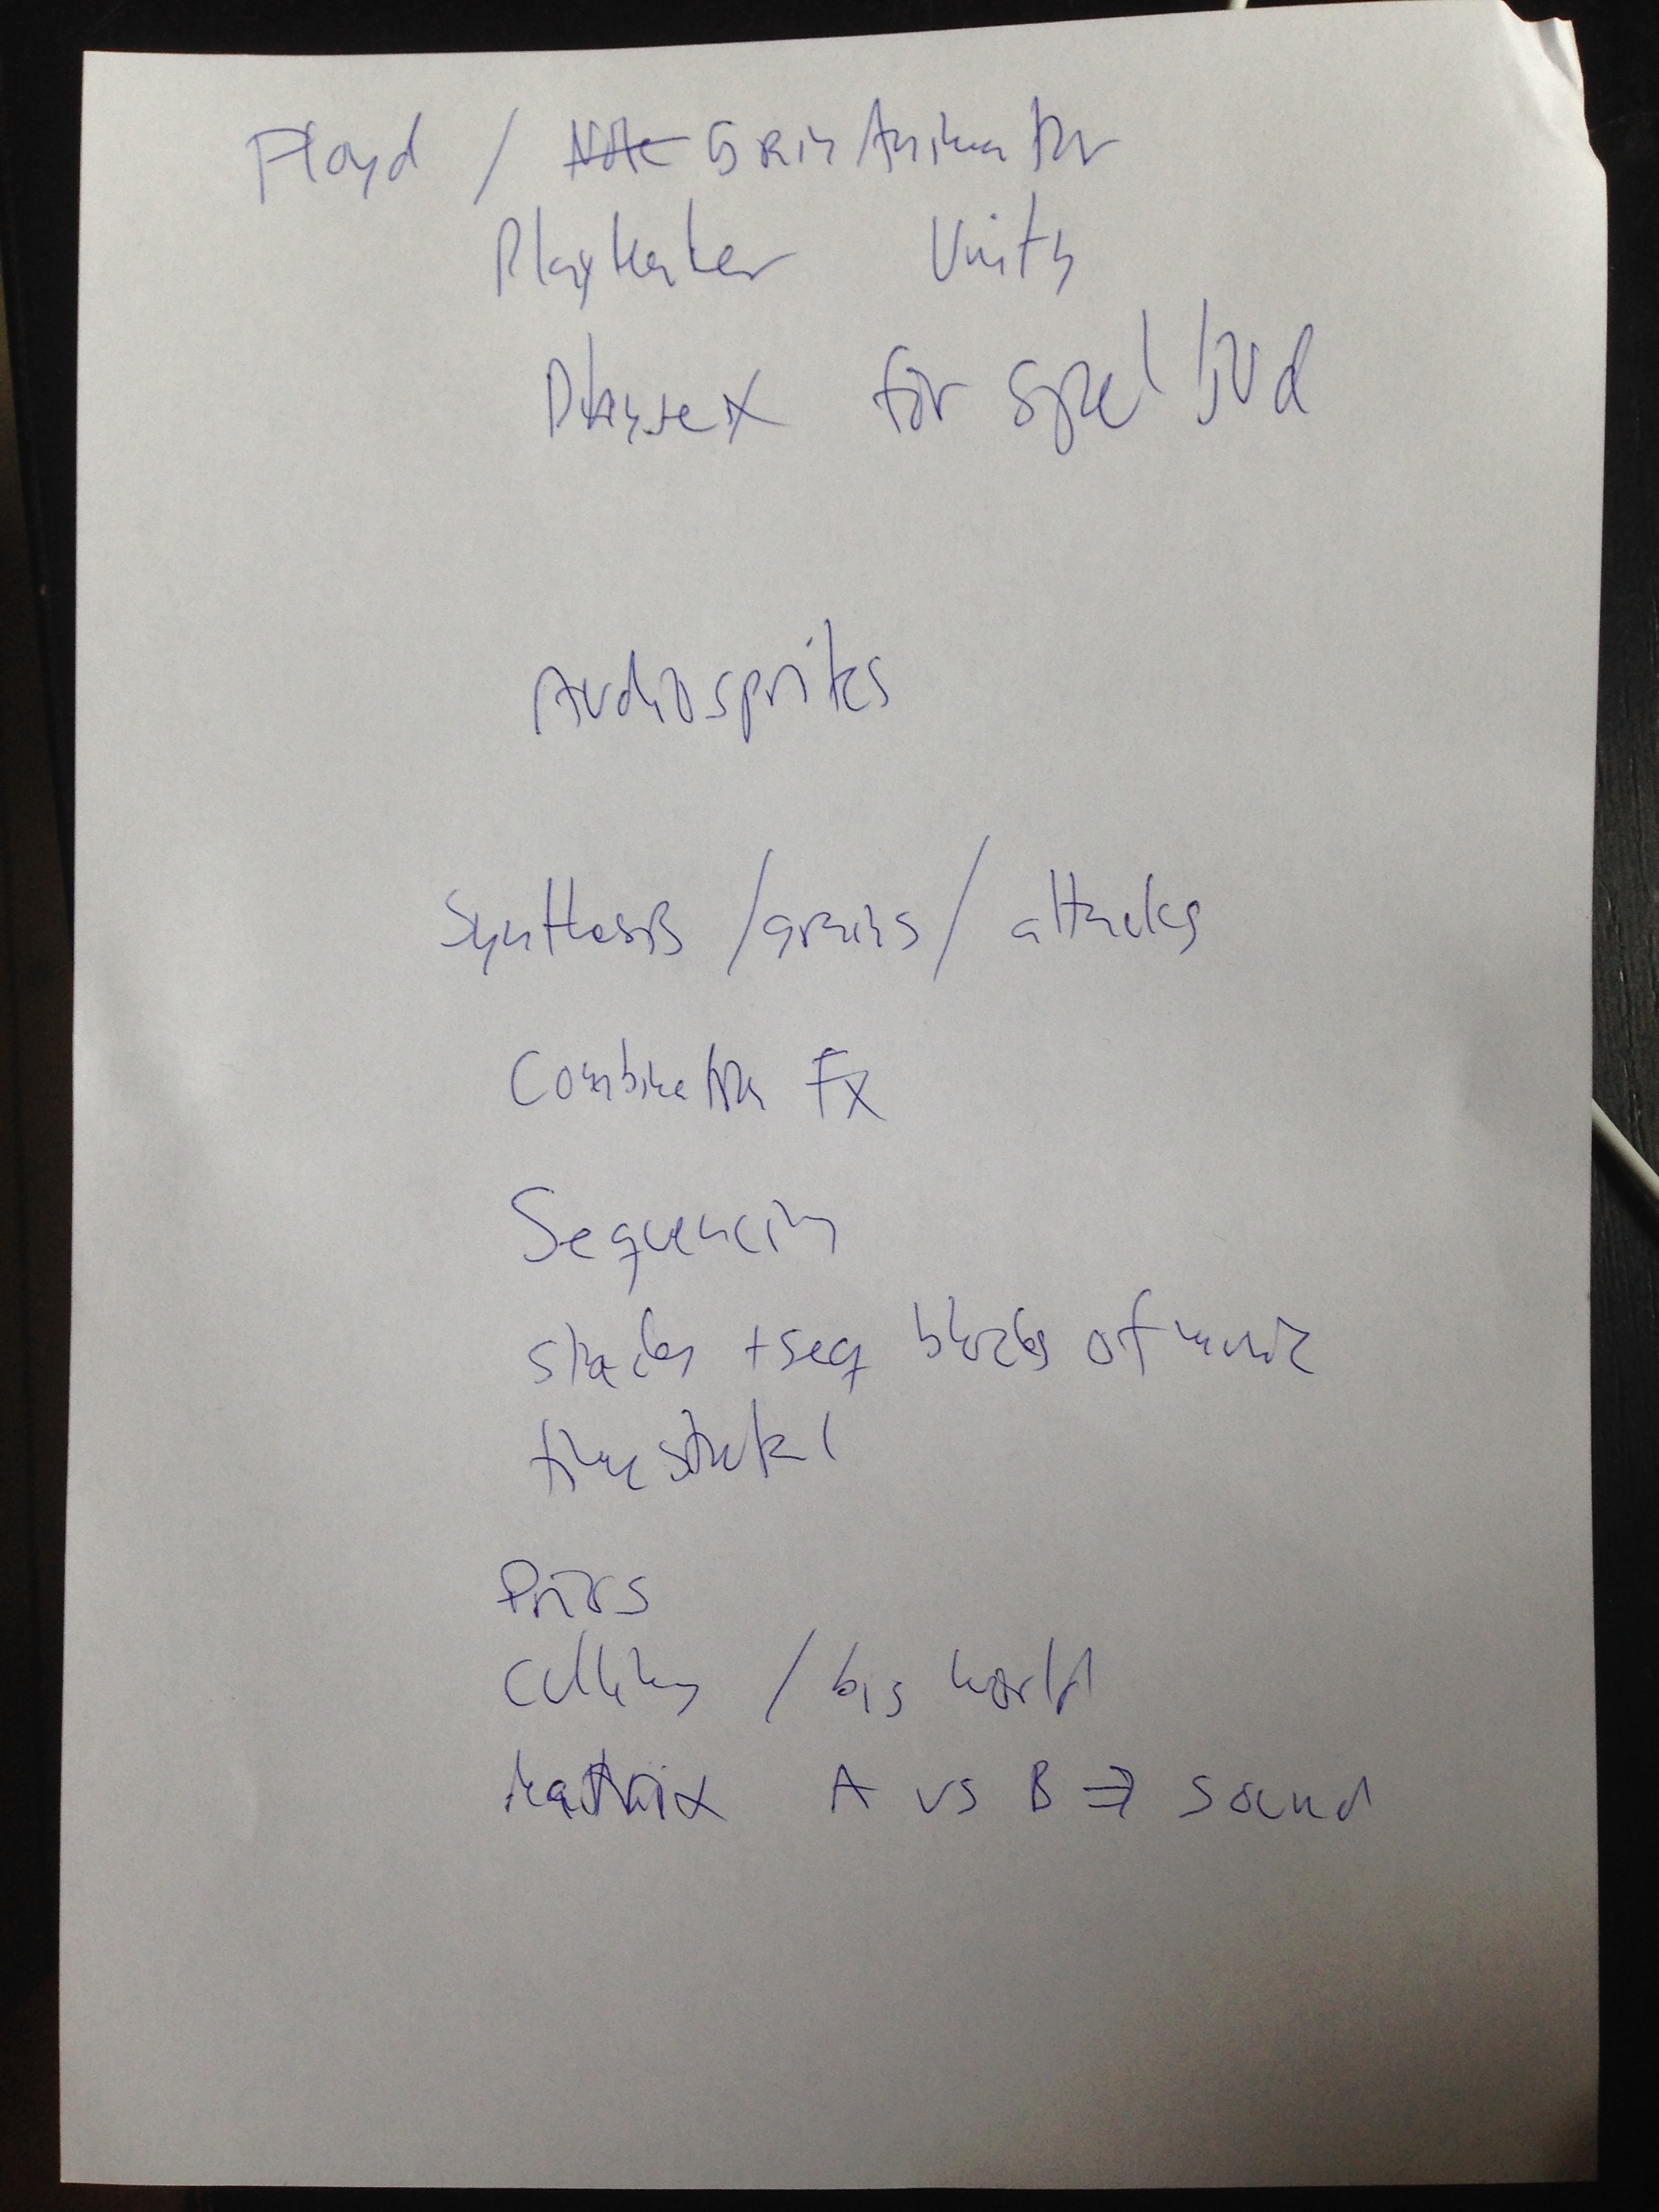 Floyd / Note Grain Animator
PlayMaker Unity
för spel ljud
Audiosprites
Synthesis / grains / attacks
Combination FX
Sequencing
stacks + seq blocks of music
Priors
Culling / big world
Matrix A vs B ⇒ sound